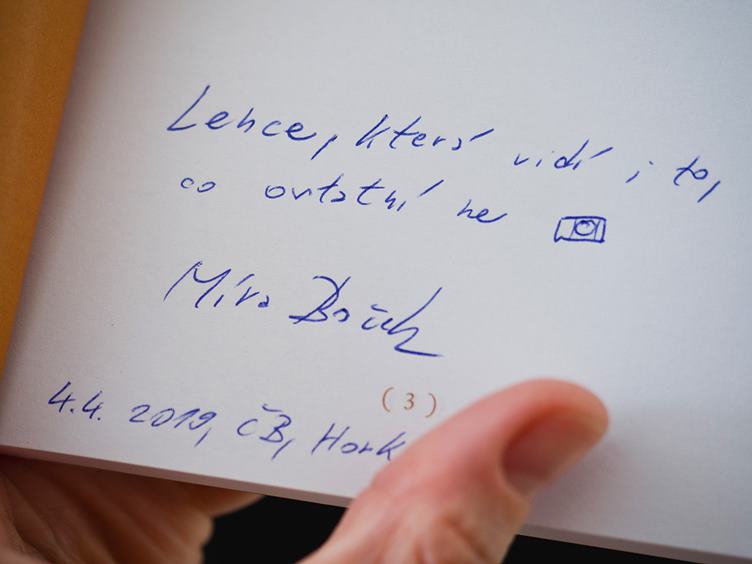 Lence, která vidí i to,
co ostatní ne
Míra
(3)
4.4. 2019, ČB, Hork